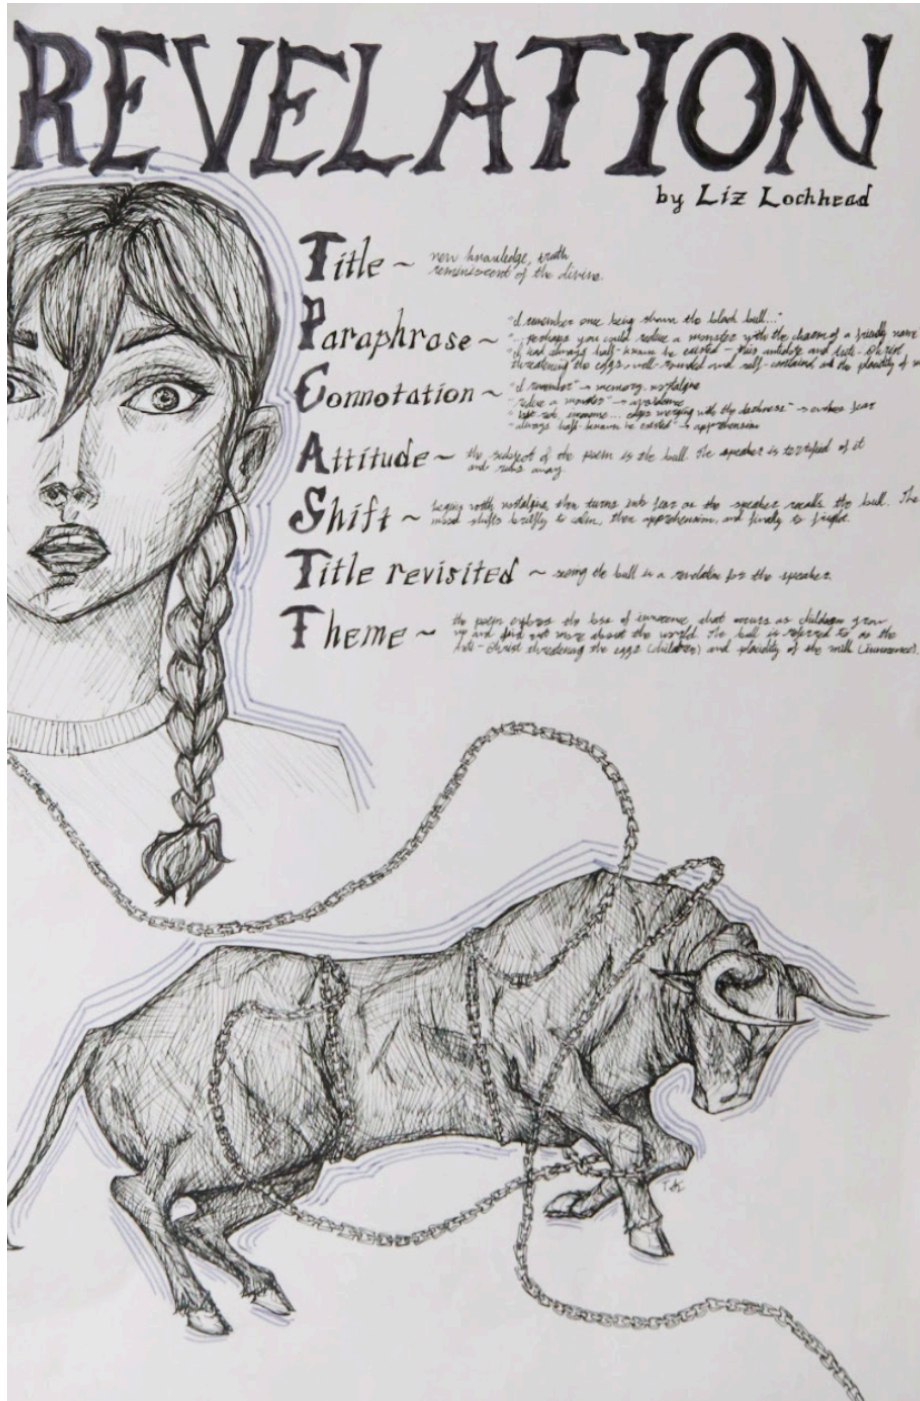 REVELATION
by Liz Lochhead
Title ~ new knowledge, truth
reminiscent of the divine.
"I remember once being shown the black bull..."
Paraphrase ~ "...perhaps you could reduce a monster with the charm of a friendly name
"I had always half-known he existed – this antidote and Anti-Christ
threatening the eggs, well rounded and self-contained and the placidity of
Connotation ~ "I remember" → memory, nostalgia
"reduce a monster" →
"hot reek, immense... edges merging with the darkness" → evokes fear
"always half-known he existed" → apprehension
Attitude ~ the subject of the poem is the bull. The speaker is terrified of it
and runs away.
Shift ~ begins with nostalgia then turns into fear as the speaker recalls the bull. The
mood shifts briefly to calm, then apprehension, and finally to fright.
Title revisited ~ seeing the bull is a revelation for the speaker.
Theme ~ the poem explores the loss of innocence, that occurs as children grow
up and find out more about the world. The bull is referred to as the
Anti-Christ threatening the eggs (children) and placidity of the milk (innocence).